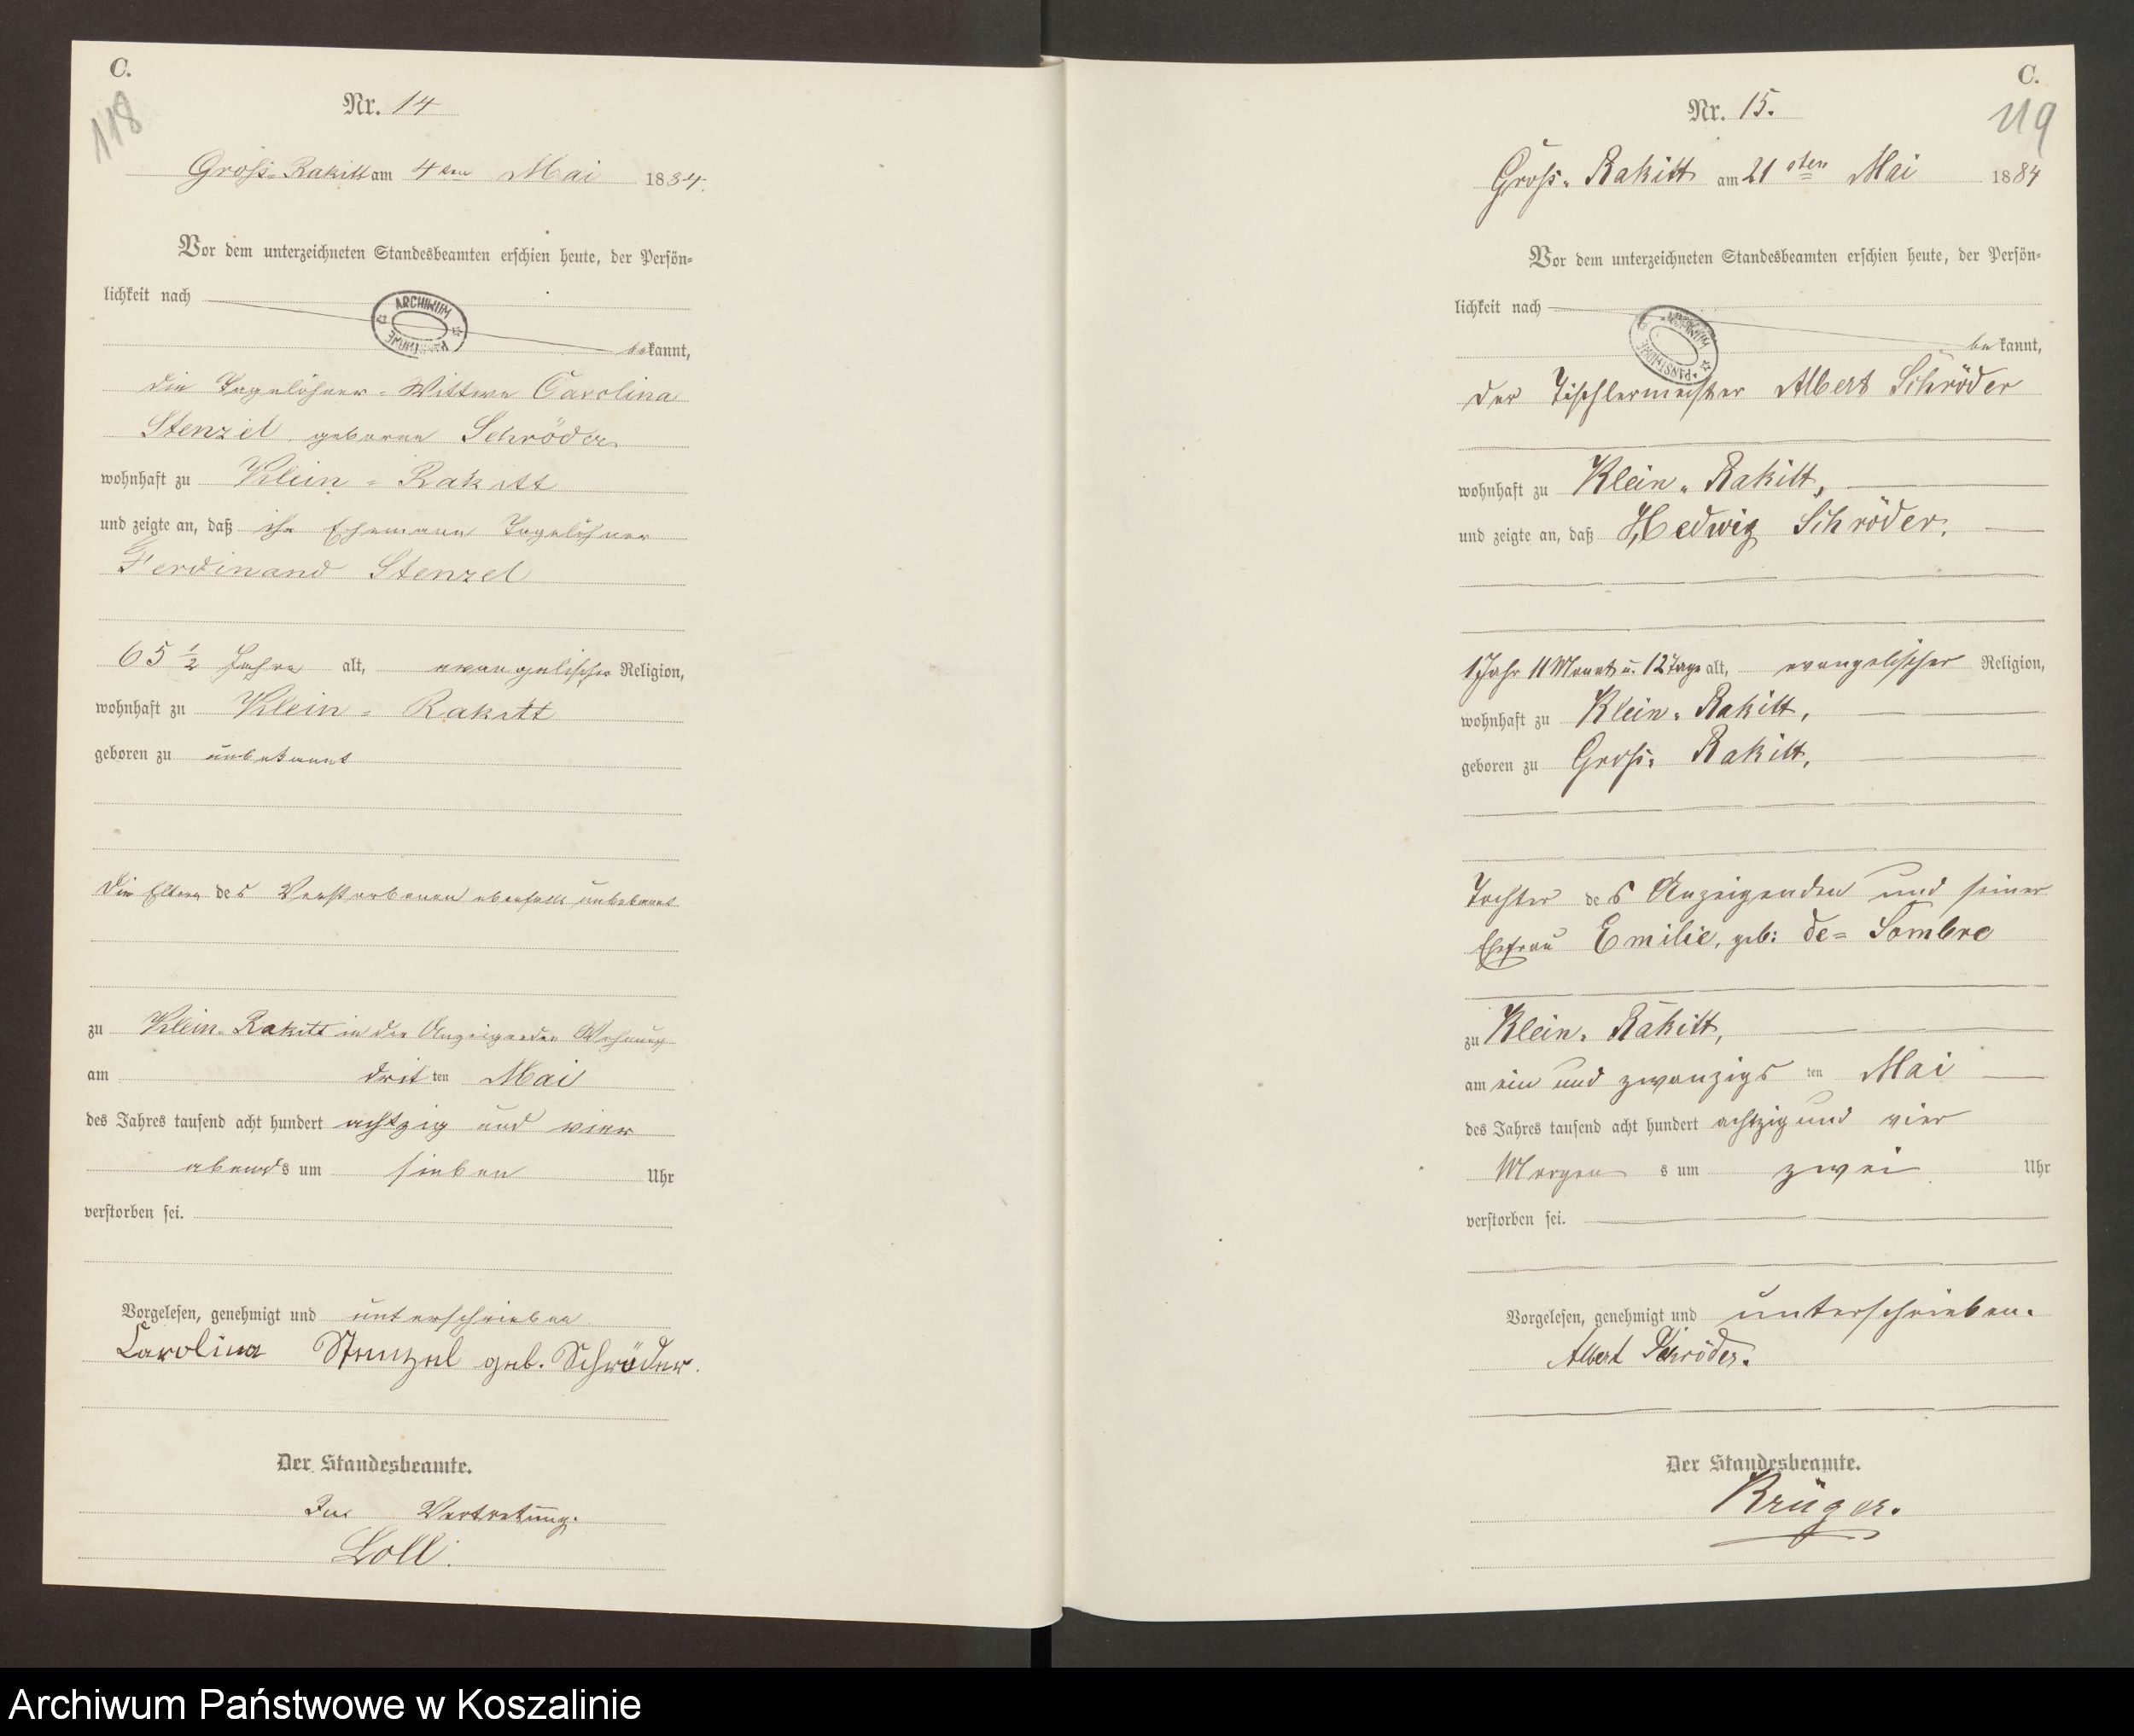 C.
118
Nr. 14
Groß-Rakitt am 4ten Mai 1884.
Vor dem unterzeichneten Standesbeamten erschien heute, der Persön-
lichkeit nach
ARCHIWUM
bekannt,
die Tagelöhner-Wittwe Carolina
Stenzel geborene Schröder
wohnhaft zu Klein-Rakitt
und zeigte an, daß ihr Ehemann Tagelöhner
Ferdinand Stenzel
65 1/2 Jahre alt, evangelischer Religion,
wohnhaft zu Klein-Rakitt
geboren zu unbekannt
Die Eltern des Verstorbenen ebenfalls unbekannt
zu Klein-Rakitt in der Anzeigenden Wohnung
am drit ten Mai
des Jahres tausend acht hundert achtzig und vier
abends um sieben Uhr
verstorben sei.
Vorgelesen, genehmigt und unterschrieben
Carolina Stenzel geb. Schröder.
Der Standesbeamte.
In Vertretung.
Loll.
C.
119
Nr. 15.
Groß-Rakitt am 21sten Mai 1884
Vor dem unterzeichneten Standesbeamten erschien heute, der Persön-
lichkeit nach
bekannt,
der Tischlermeister Albert Schröder
wohnhaft zu Klein-Rakitt,
und zeigte an, daß Hedwig Schröder,
1 Jahr 11 Monat u. 12 Tage alt, evangelischer Religion,
wohnhaft zu Klein-Rakitt,
geboren zu Groß-Rakitt,
Tochter des Anzeigenden und seiner
Ehefrau Emilie, geb: de=Sombre
zu Klein-Rakitt,
am ein und zwanzigs ten Mai
des Jahres tausend acht hundert achtzig und vier
Morgen s um zwei Uhr
verstorben sei.
Vorgelesen, genehmigt und unterschrieben.
Albert Schröder.
Der Standesbeamte.
Krüger.
Archiwum Państwowe w Koszalinie